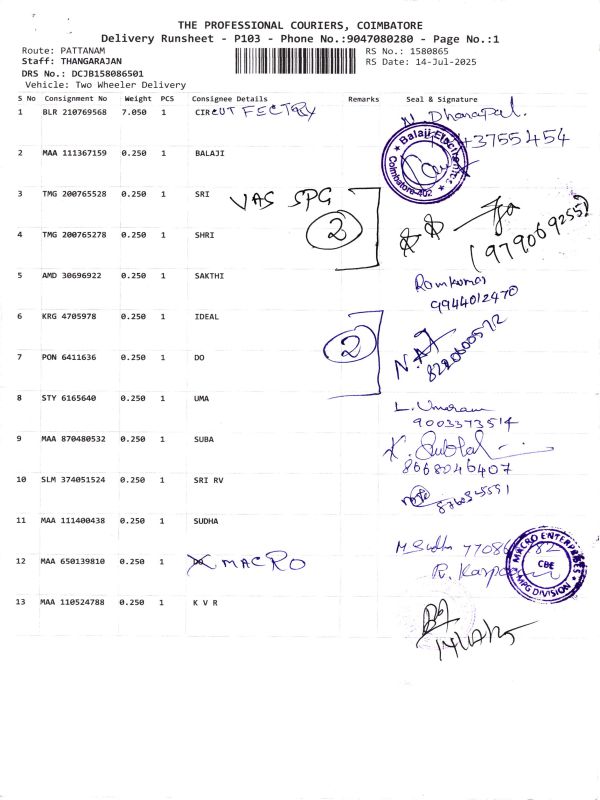 THE PROFESSIONAL COURIERS, COIMBATORE
Delivery Runsheet - P103 - Phone No.:9047080280 - Page No.:1
Route: PATTANAM
RS No.: 1580865
Staff: THANGARAJAN
RS Date: 14-Jul-2025
DRS No.: DCJB158086501
Vehicle: Two Wheeler Delivery
S No Consignment No Weight PCS Consignee Details Remarks Seal & Signature
1 BLR 210769568 7.050 1 CIRCUT FECTORY N. Dhanapal.
43755454
Balaji Electronics
Coimbatore
2 MAA 111367159 0.250 1 BALAJI
3 TMG 200765528 0.250 1 SRI VAS SPG
2
4 TMG 200765278 0.250 1 SHRI
(9790692552)
5 AMD 30696922 0.250 1 SAKTHI Ramkumar
9944012470
6 KRG 4705978 0.250 1 IDEAL
2
7 PON 6411636 0.250 1 DO
8220600572
8 STY 6165640 0.250 1 UMA L. Umaram
9003373514
9 MAA 870480532 0.250 1 SUBA
8668046407
10 SLM 374051524 0.250 1 SRI RV
11 MAA 111400438 0.250 1 SUDHA
M. Sudha
12 MAA 650139810 0.250 1 MACRO
MACRO ENTERPRISES
CBE
MPG DIVISION
13 MAA 110524788 0.250 1 K V R